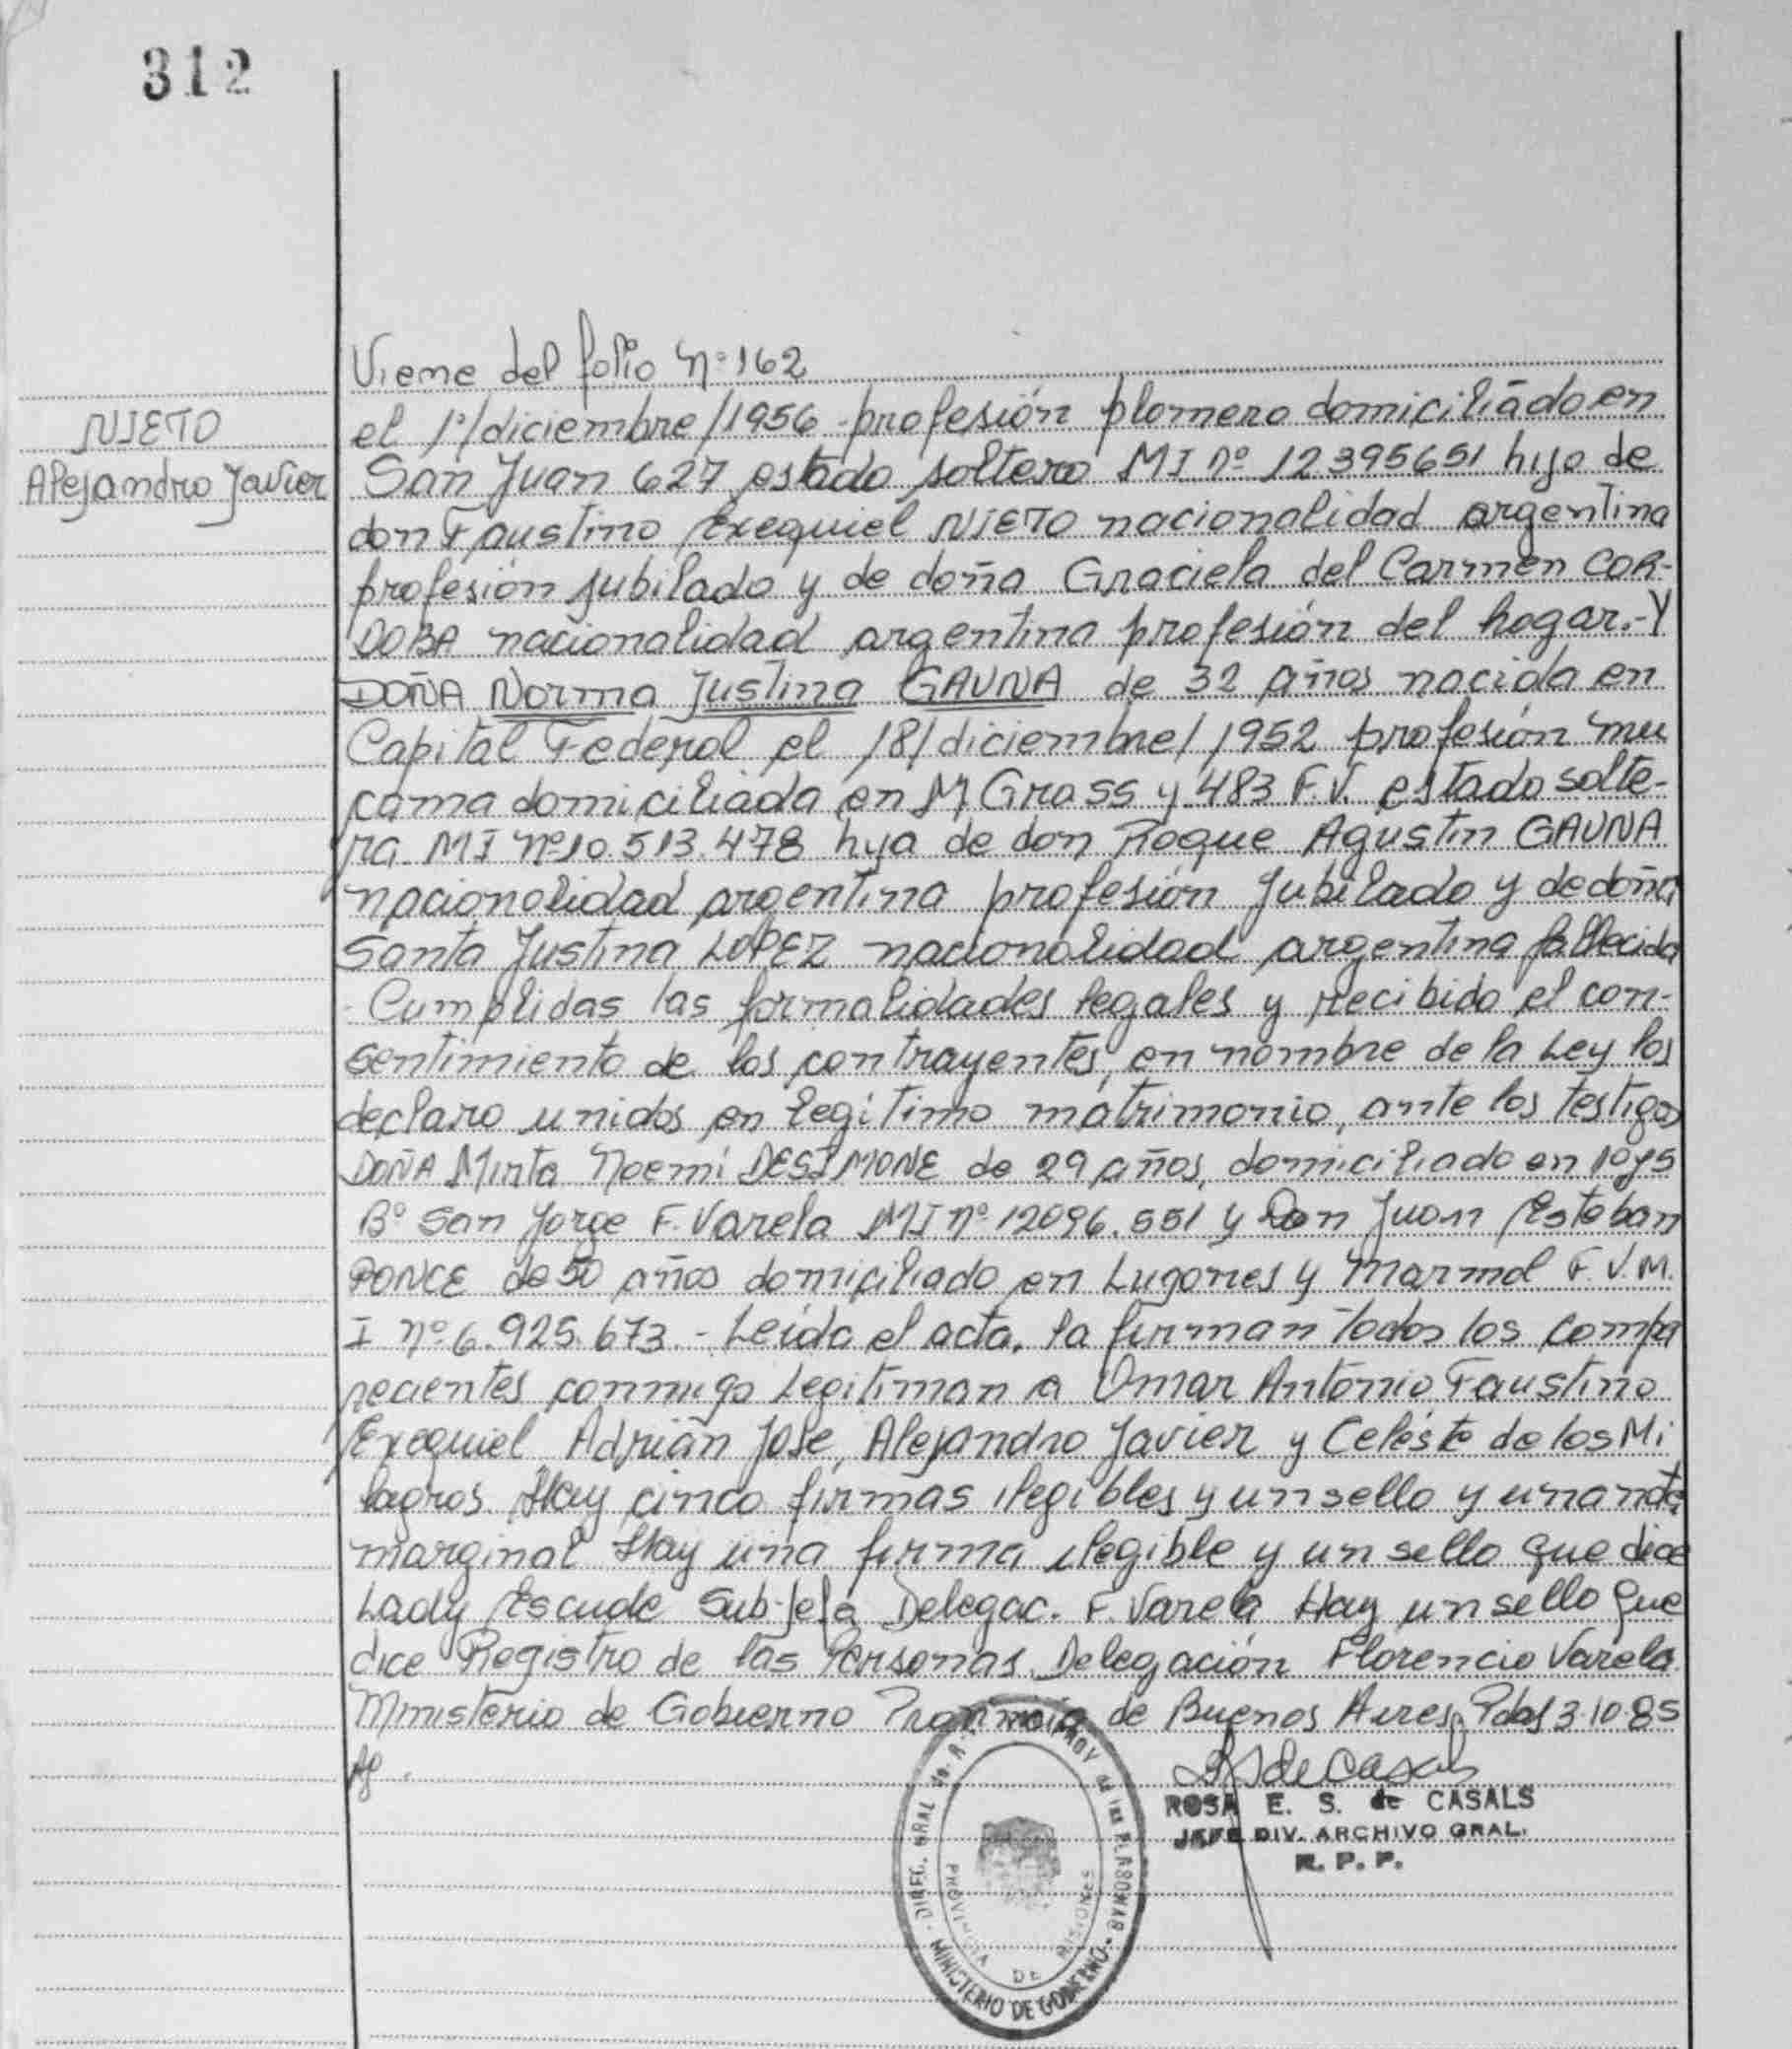 312
Viene del folio nº 162
NIETO
Alejandro Javier
el 1º/diciembre/1956 - profesión plomero domiciliado en
San Juan 627 estado soltero MI nº 12395651 hijo de
don Faustino Exequiel NIETO nacionalidad argentina
profesión jubilado y de doña Graciela del Carmen COR-
DOBA nacionalidad argentina profesión del hogar.- Y
DOÑA Norma Justina GAUNA de 32 años nacida en
Capital Federal el 18/diciembre/1952 profesión mu
cama domiciliada en M Grass y 483 F.V. estado solte-
ra MI nº 10.513.478 hija de don Roque Agustin GAUNA
nacionalidad argentina profesión jubilado y de doña
Santa Justina LOPEZ nacionalidad argentina fallecida
- Cumplidas las formalidades legales y recibido el con-
sentimiento de los contrayentes, en nombre de la Ley los
declaro unidos en legítimo matrimonio, ante los testigos
DOÑA Mirta Noemí DESIMONE de 29 años, domiciliado en 10 y 5
Bº San Jorge F. Varela MI nº 12096.551 y Don Juan Esteban
PONCE de 50 años domiciliado en Lugones y Marmol F.V.M.
I nº 6.925.673.- Leída el acta, la firman todos los compa
recientes conmigo Legitiman a Omar Antonio, Faustino
Exequiel, Adrián José, Alejandro Javier y Celéste de los Mi
lagros. Hay cinco firmas ilegibles y un sello y una nota
marginal Hay una firma ilegible y un sello que dice
Lady Escude Sub-Jefa Delegac. F. Varela Hay un sello que
dice Registro de las Personas Delegación Florencio Varela
Ministerio de Gobierno Provincia de Buenos Aires. Pdas 3.10.85
de Casals
ROSA E. S. de CASALS
JEFE DIV. ARCHIVO GRAL.
R. P. P.
DIREC. GRAL de las PERSONAS
PROVINCIA DE MISIONES
MINISTERIO DE GOBIERNO